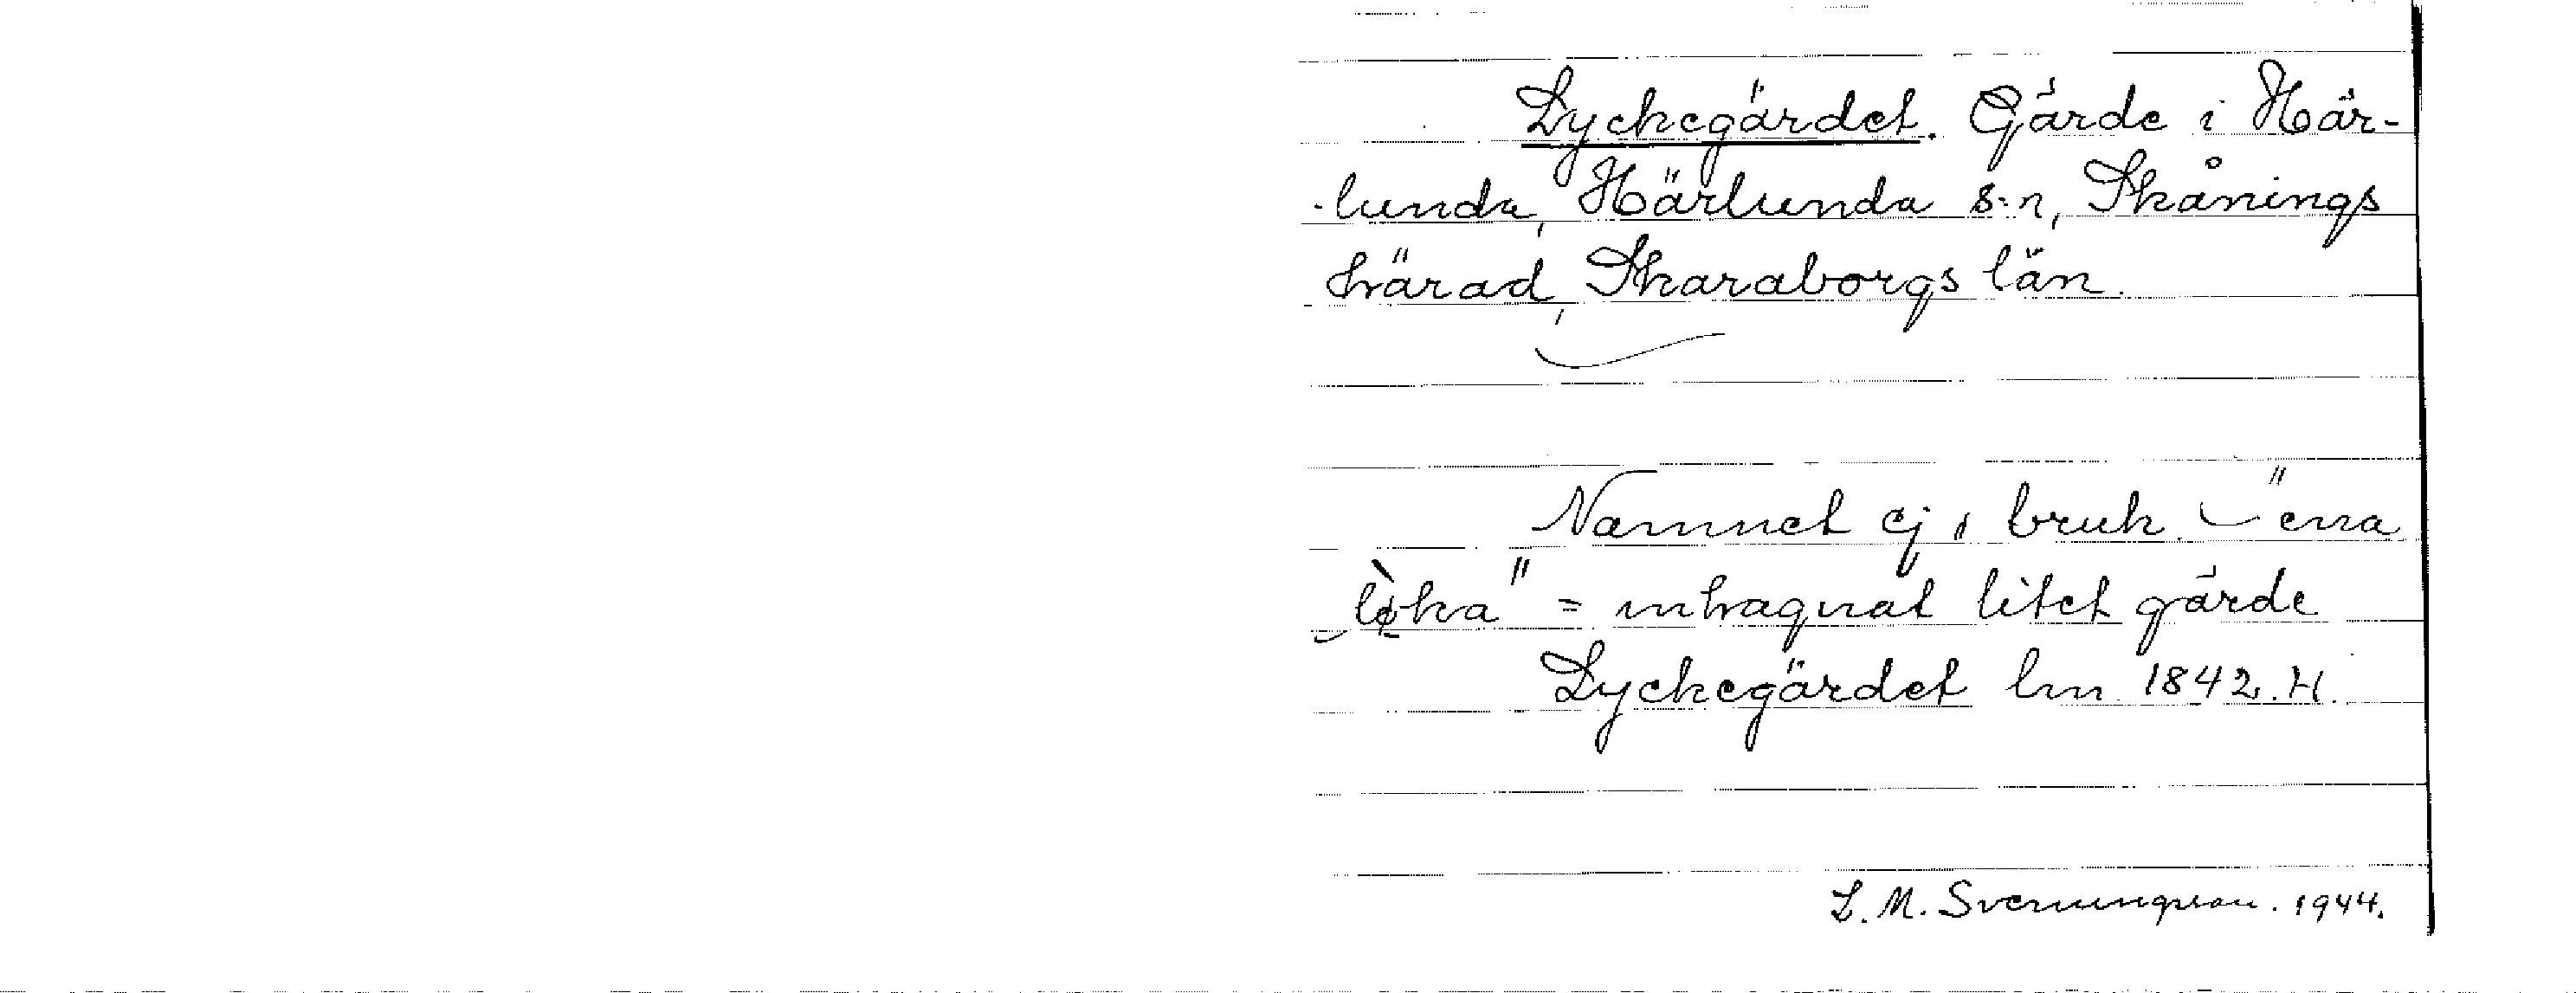 Lyckegärdet. Gärde i Här-
-lunda, Härlunda s:n, Skånings
härad, Skaraborgs län.
Namnet ej i bruk. – "ena
lø̀ka" = inhägnat litet gärde
Lyckegärdet lm 1842. H.
L. M. Svenungsson. 1944.